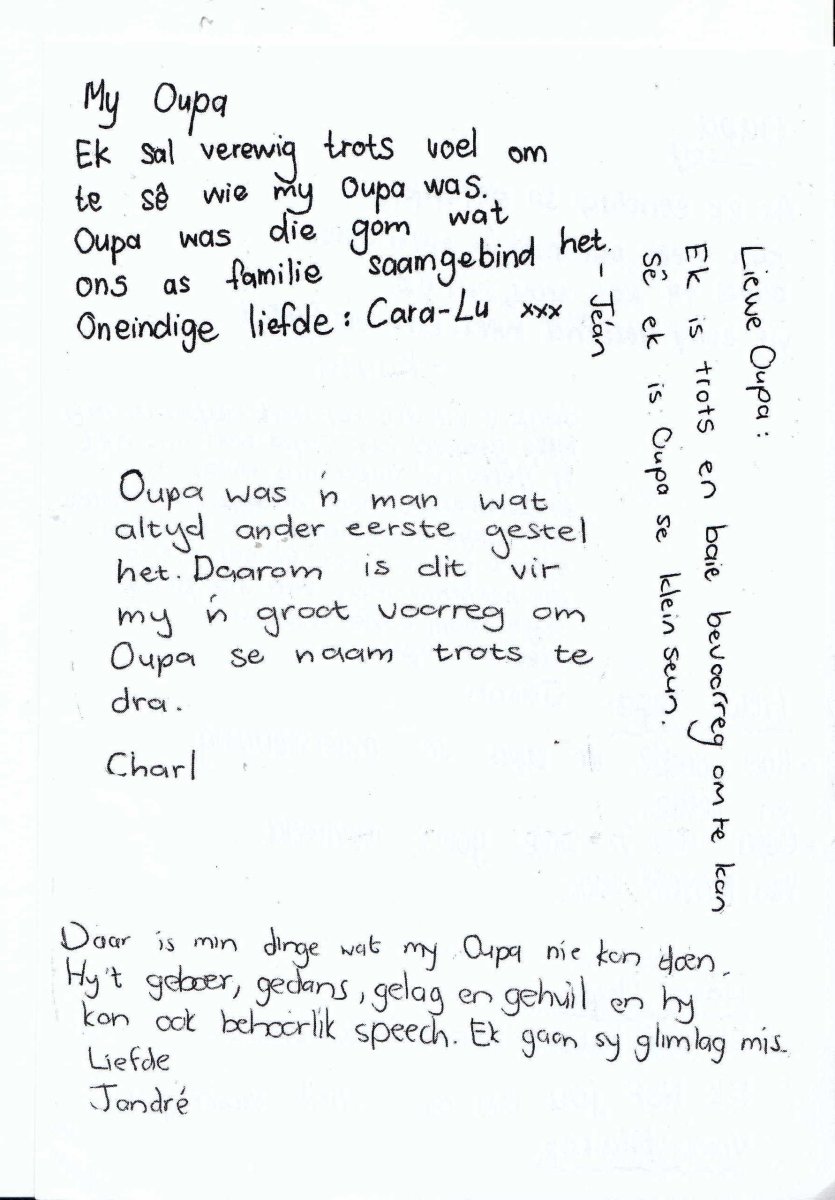 My Oupa
Ek sal verewig trots voel om
te sê wie my Oupa was.
Oupa was die gom wat
ons as familie saamgebind het.
Oneindige liefde: Cara-Lu xxx
Liewe Oupa:
Ek is trots en baie bevoorreg om te kan
sê ek is: Oupa se klein seun.
- Jéan
Oupa was 'n man wat
altyd ander eerste gestel
het. Daarom is dit vir
my 'n groot voorreg om
Oupa se naam trots te
dra.
Charl
Daar is min dinge wat my Oupa nie kon doen.
Hy't geboer, gedans, gelag en gehuil en hy
kon ook behoorlik speech. Ek gaan sy glimlag mis.
Liefde
Jandré